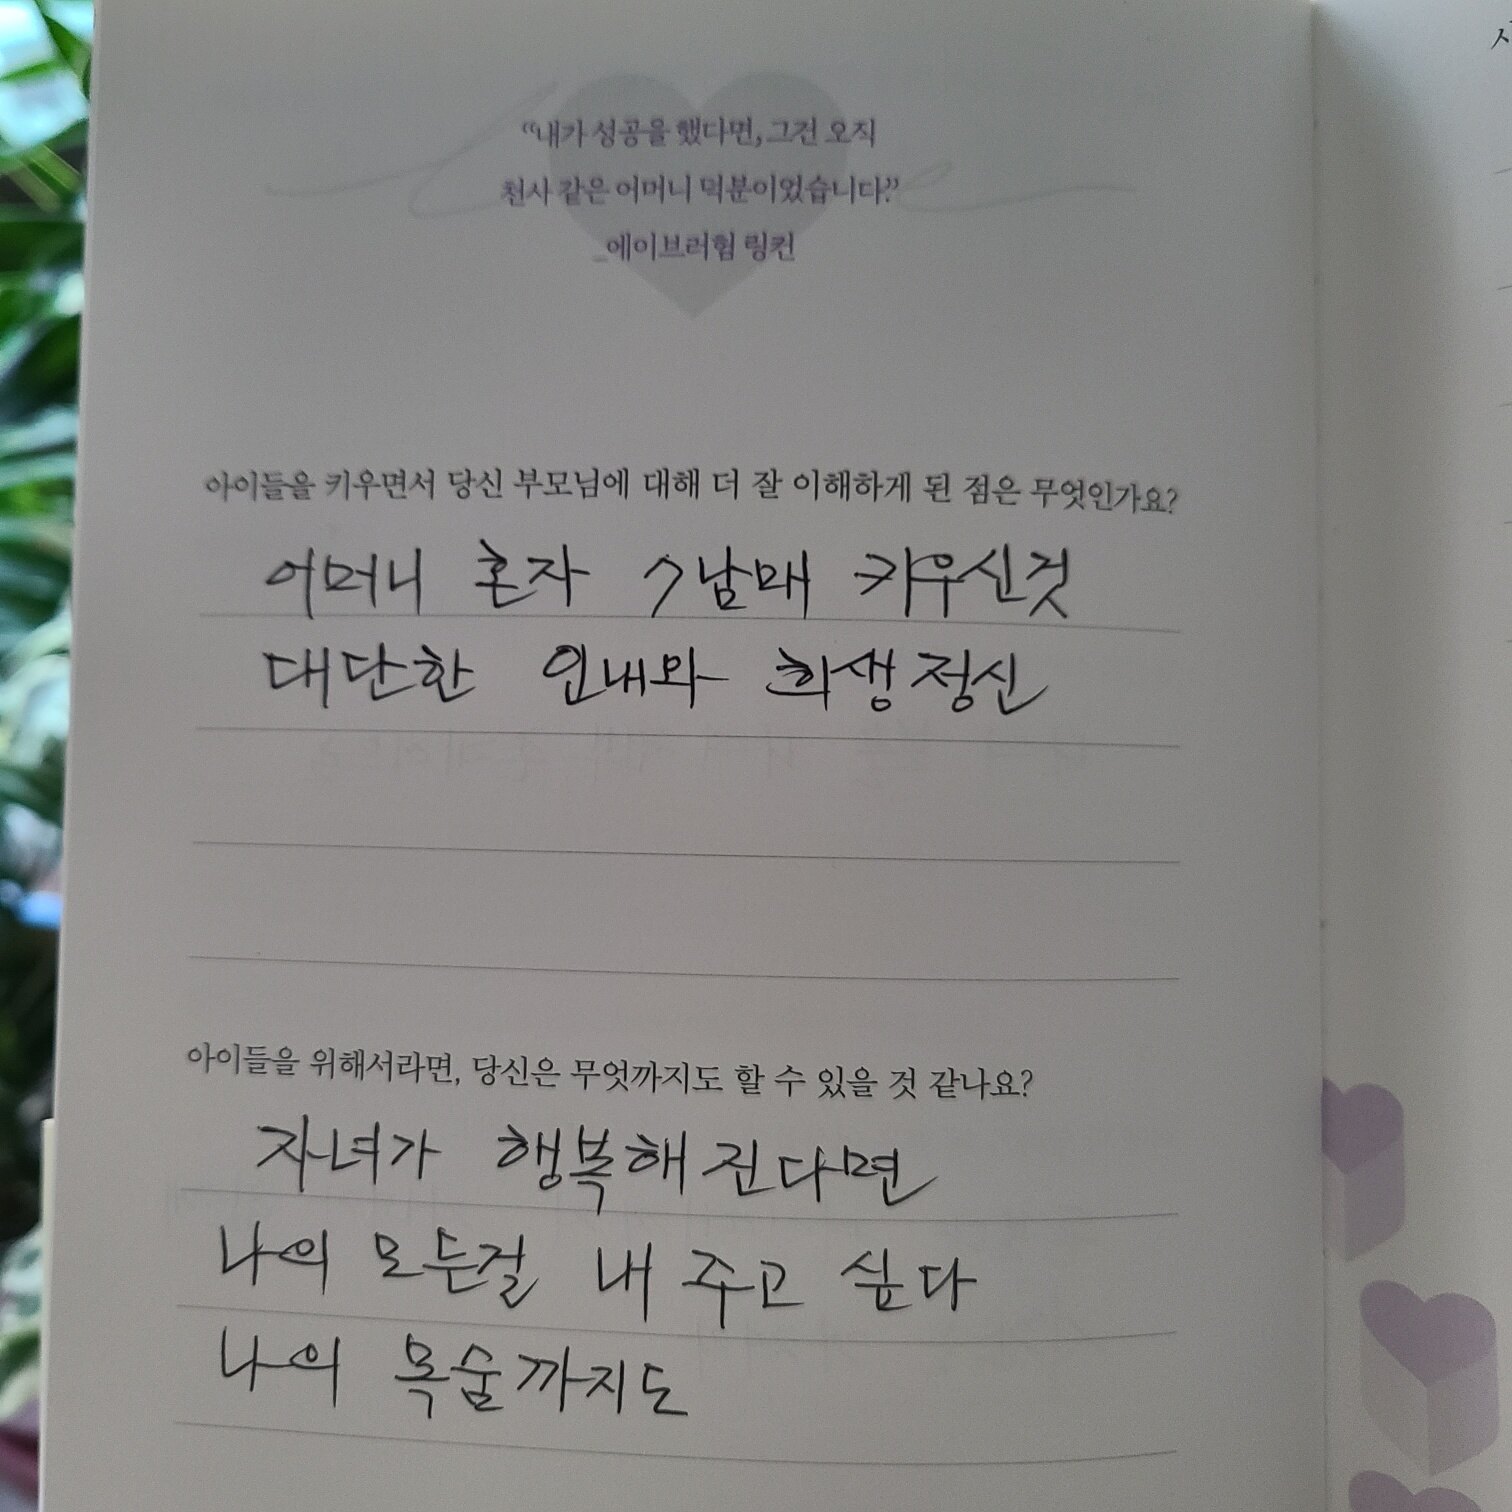 “내가 성공을 했다면, 그건 오직
천사 같은 어머니 덕분이었습니다.”
_에이브러험 링컨
아이들을 키우면서 당신 부모님에 대해 더 잘 이해하게 된 점은 무엇인가요?
어머니 혼자 7남매 키우신것
대단한 인내와 희생정신
아이들을 위해서라면, 당신은 무엇까지도 할 수 있을 것 같나요?
자녀가 행복해 진다면
나의 모든걸 내 주고 싶다
나의 목숨까지도